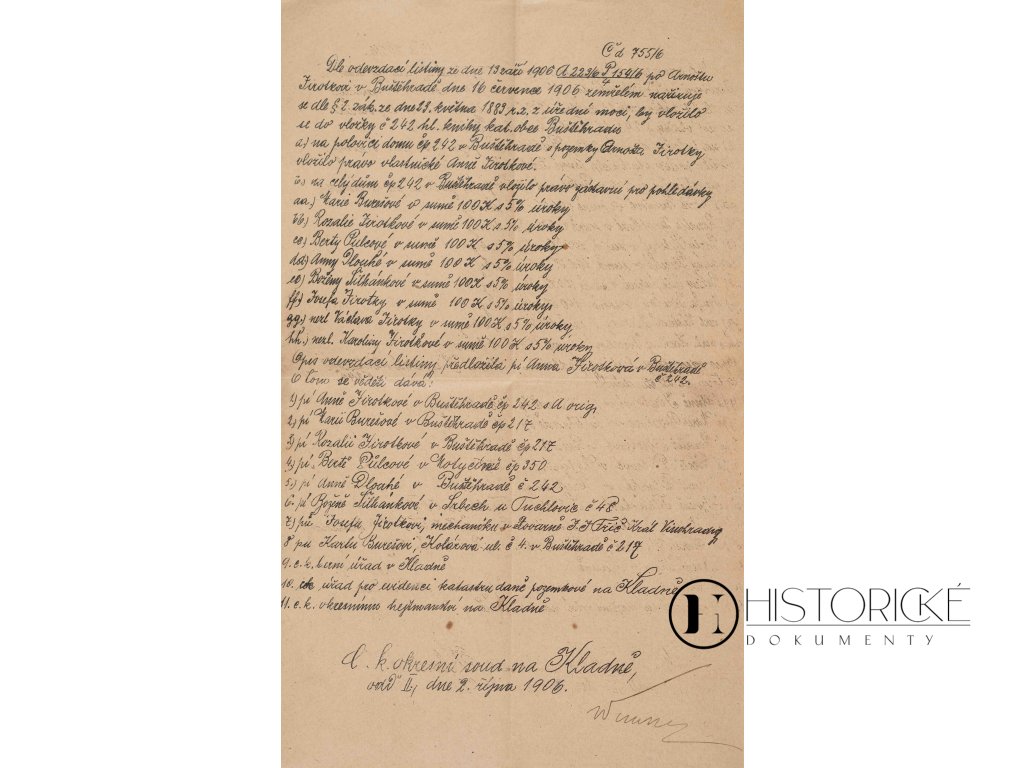 Čd 755/6
Dle odevzdací listiny ze dne 13 září 1906 A 223/6 P 154/6 po Arnoštu
Jirotkovi v Buštěhradě dne 16 července 1906 zemřelém nařizuje
se dle § 2. zák. ze dne 23. května 1883 ř.z. z úřední moci, by vložilo
se do vložky č 242 hl. knihy kat. obce Buštěhradu
a) na polovici domu čp 242 v Buštěhradě s pozemky Arnošta Jirotky
vložilo právo vlastnické Anně Jirotkové.
b) na celý dům čp 242 v Buštěhradě vložilo právo zástavní pro pohledávky
aa.) Marie Burešové v sumě 100 K s 5% úroky
bb.) Rozalie Jirotkové v sumě 100 K s 5% úroky
cc) Berty Pulcové v sumě 100 K s 5% úroky
dd) Anny Dlouhé v sumě 100 K s 5% úroky
ee) Boženy Šilhánkové v sumě 100 K s 5% úroky
ff.) Josefa Jirotky v sumě 100 K s 5% úroky
gg.) nezl Václava Jirotky v sumě 100 K s 5% úroky
hh.) nezl. Karoliny Jirotkové v sumě 100 K s 5% úroky
Opis odevzdací listiny předložila pí Anna Jirotková v Buštěhradě
č 242.
O tom se věděti dává:
1) pí Anně Jirotkové v Buštěhradě čp 242 s A orig.
2) pí Marii Burešové v Buštěhradě čp 217
3) pí Rozalii Jirotkové v Buštěhradě čp 217
4) pí Bertě Pulcové v Motyčíně čp 350
5) pí Anně Dlouhé v Buštěhradě č 242
6. pí Boženě Šilhánkové v Srbech u Tuchlovic č 48
7) pu Josefu Jirotkovi, mechaniku v továrně J. J Frič Král Vinohrady
8 pu Karlu Burešovi, Kolárova ul. č 4. v Buštěhradě č 217
9. c. k. berní úřad v Kladně
10. ck úřad pro evidenci katastru daně pozemkové na Kladně
11. c. k. okresnímu hejtmanství na Kladně
C. k. okresní soud na Kladně,
odd II, dne 2. října 1906.
HISTORICKÉ
DOKUMENTY